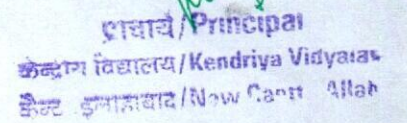 प्राचार्य/Principal
केन्द्रीय विद्यालय/Kendriya Vidyalaya
कैन्ट इलाहाबाद/New Cantt Allah